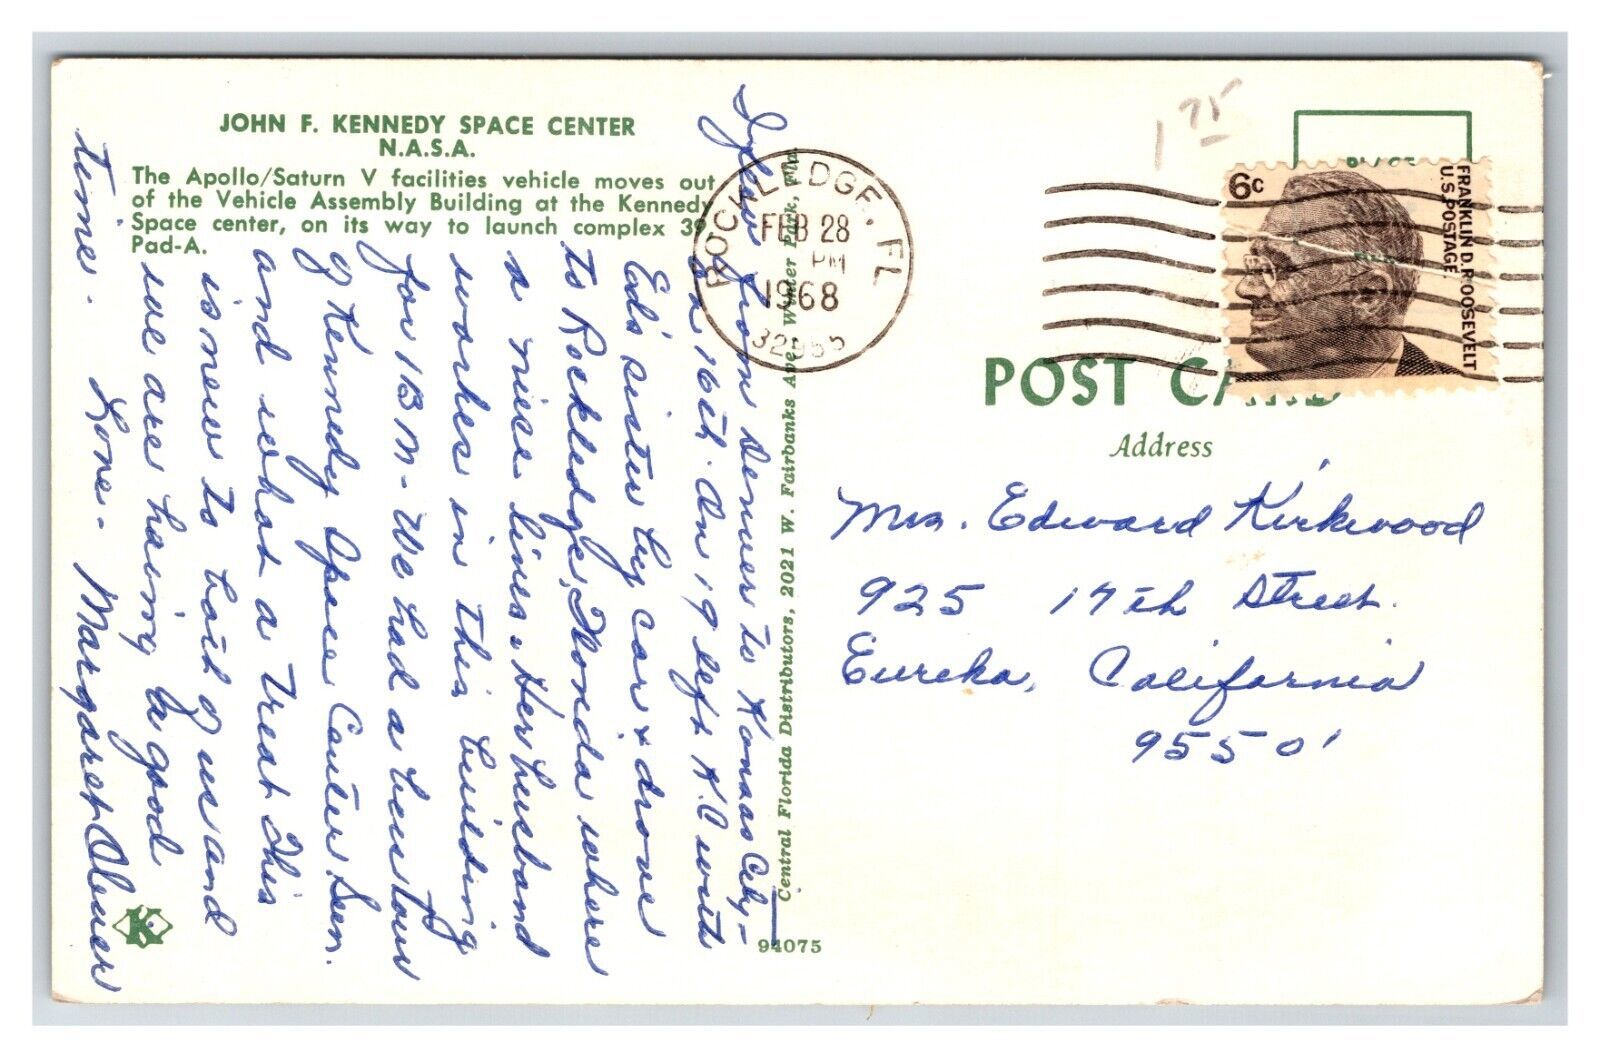 JOHN F. KENNEDY SPACE CENTER
N.A.S.A.
The Apollo/Saturn V facilities vehicle moves out
of the Vehicle Assembly Building at the Kennedy
Space center, on its way to launch complex 39
Pad-A.
I flew from Denver to Kansas City -
on 16th. On 19 left K.C with
Ed's sister by car & drove
to Rockledge, Florida where
she lives. Her husband
works in this building
for IBM - We had a bus tour
of Kennedy Space Center Seen.
and what a treat. This
is new to both of us and
we are having a good
time. Love - Margaret
Central Florida Distributors, 2021 W. Fairbanks Ave., Winter Park, Fla.
94075
K
ROCKLEDGE, FL
FEB 28
PM
1968
32955
1 75
PLACE
6c
FRANKLIN D. ROOSEVELT
U.S. POSTAGE
POST CARD
Address
Mrs. Edward Kirkwood
925 17th Street.
Eureka, California
95501